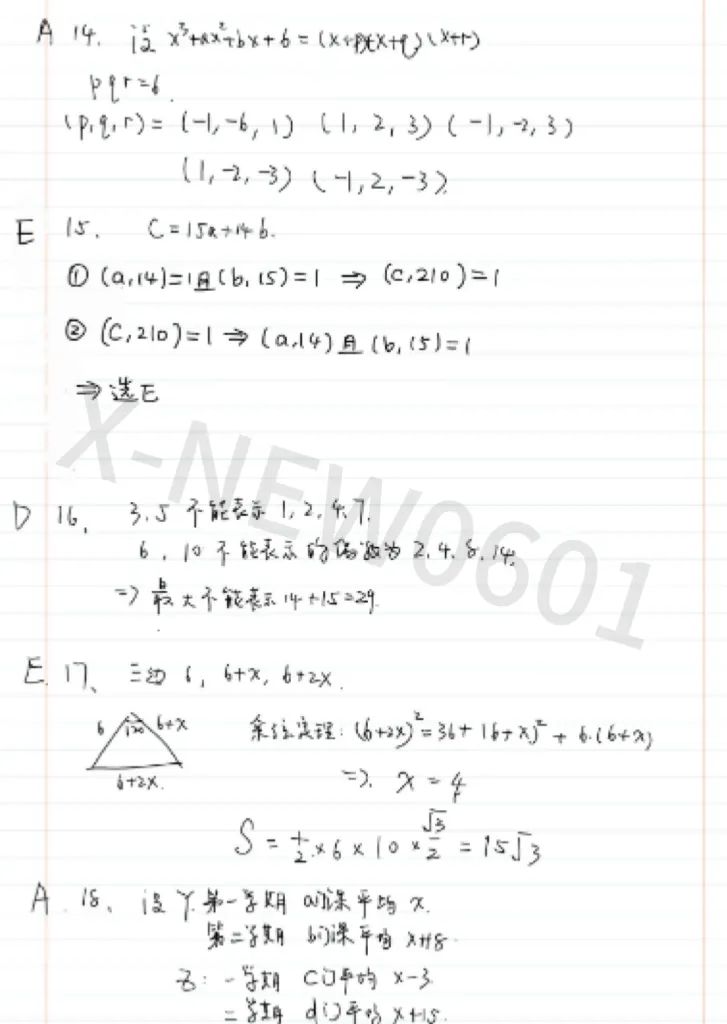 A 14. 设 x³+ax²+bx+6=(x+p)(x+q)(x+r)
pqr=6.
(p,q,r)=(-1,-6,1) (1,2,3) (-1,-2,3)
(1,-2,-3) (-1,2,-3).
E 15. C=15a+14b.
① (a,14)=1且(b,15)=1 ⇒ (c,210)=1
② (C,210)=1 ⇒ (a,14)且(b,15)=1
⇒ 选E
X-NEW0601
D 16. 3.5 不能表示 1,2,4,7.
6, 10 不能表示的偶数为 2.4.8.14.
⇒ 最大不能表示 14+15=29.
E 17、 三边 6, 6+x, 6+2x.
6 120 6+x
6+2x.
余弦定理: (6+2x)²=36+(6+x)²+6·(6+x)
⇒ x=4
S=½×6×10×√3/2=15√3
A. 18、 设 Y. 第一学期 a门课平均 x.
第二学期 b门课平均 x+18.
Z: 一学期 c门平均 x-3
二学期 d门平均 x+15.